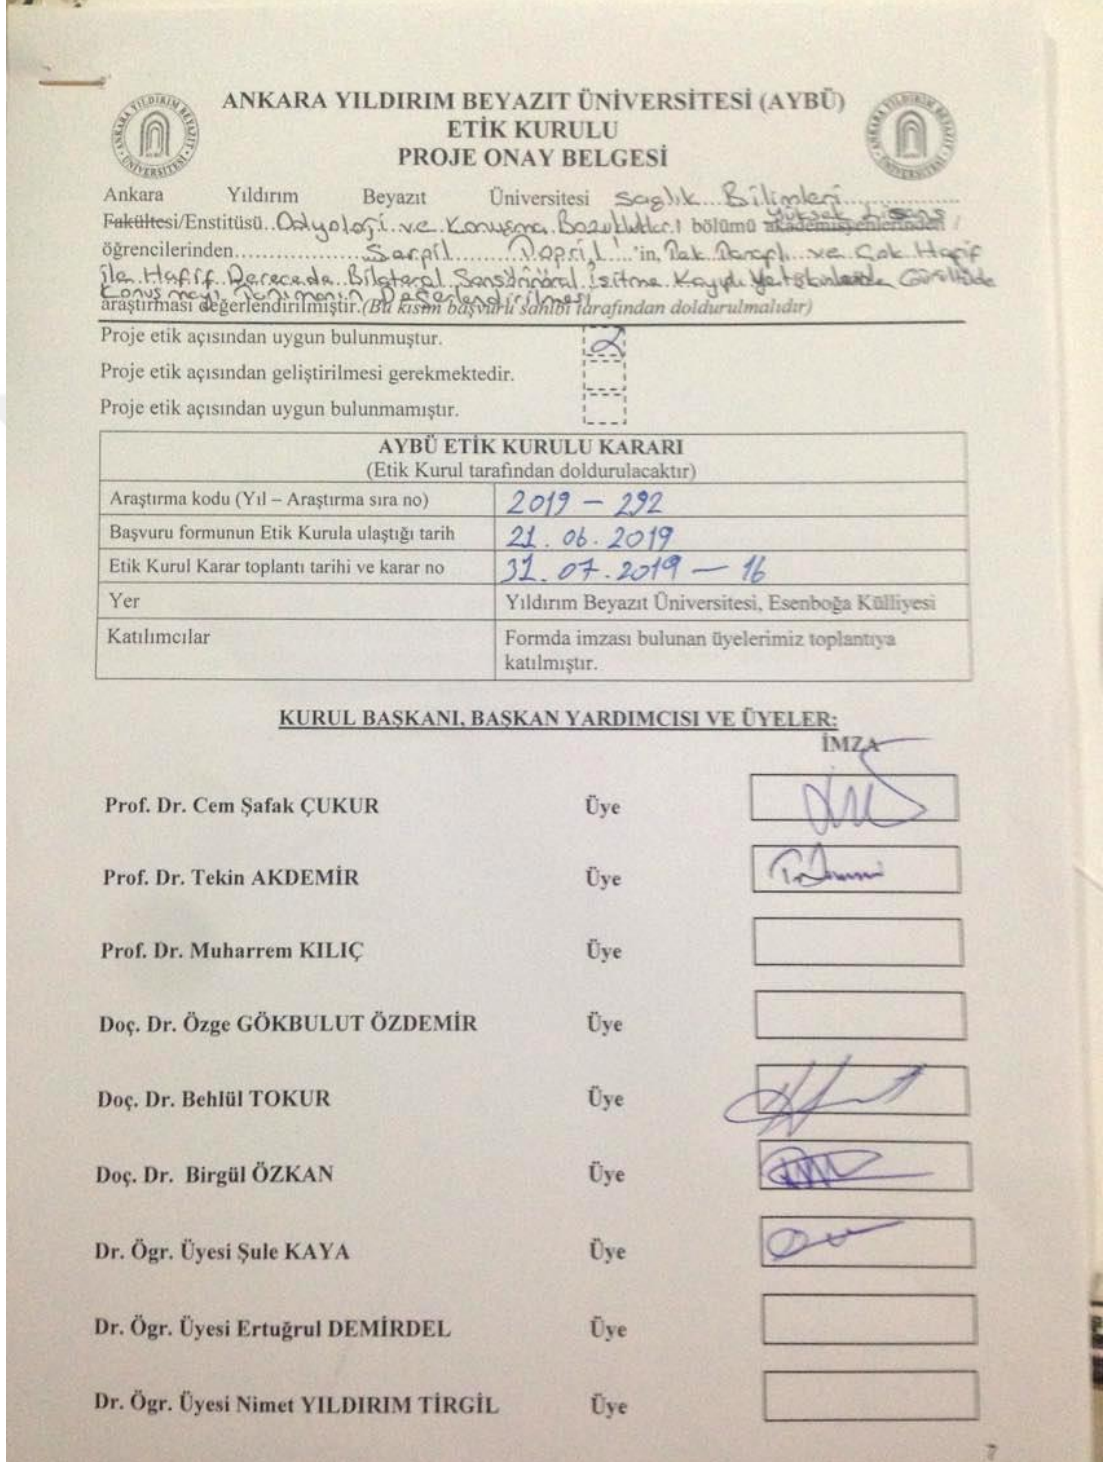 ANKARA YILDIRIM BEYAZIT ÜNİVERSİTESİ (AYBÜ)
ETİK KURULU
PROJE ONAY BELGESİ
Ankara Yıldırım Beyazıt Üniversitesi Sağlık Bilimleri
Fakültesi/Enstitüsü Odyoloji ve Konuşma Bozuklukları bölümü akademisyenlerinden / Yüksek Lisans
öğrencilerinden Serpil 'in, Tek Taraflı ve Çok Hafif
ile Hafif Derecede Bilateral Sensörinöral İşitme Kayıplı Yetişkinlerde Gürültüde
Konuşmayı Tanımanın Değerlendirilmesi
araştırması değerlendirilmiştir.(Bu kısım başvuru sahibi tarafından doldurulmalıdır)
Proje etik açısından uygun bulunmuştur.
Proje etik açısından geliştirilmesi gerekmektedir.
Proje etik açısından uygun bulunmamıştır.
AYBÜ ETİK KURULU KARARI
(Etik Kurul tarafından doldurulacaktır)
Araştırma kodu (Yıl – Araştırma sıra no) 2019 – 292
Başvuru formunun Etik Kurula ulaştığı tarih 21.06.2019
Etik Kurul Karar toplantı tarihi ve karar no 31.07.2019 – 16
Yer Yıldırım Beyazıt Üniversitesi, Esenboğa Külliyesi
Katılımcılar Formda imzası bulunan üyelerimiz toplantıya
katılmıştır.
KURUL BAŞKANI, BAŞKAN YARDIMCISI VE ÜYELER:
İMZA
Prof. Dr. Cem Şafak ÇUKUR Üye
Prof. Dr. Tekin AKDEMİR Üye
Prof. Dr. Muharrem KILIÇ Üye
Doç. Dr. Özge GÖKBULUT ÖZDEMİR Üye
Doç. Dr. Behlül TOKUR Üye
Doç. Dr. Birgül ÖZKAN Üye
Dr. Ögr. Üyesi Şule KAYA Üye
Dr. Ögr. Üyesi Ertuğrul DEMİRDEL Üye
Dr. Ögr. Üyesi Nimet YILDIRIM TİRGİL Üye